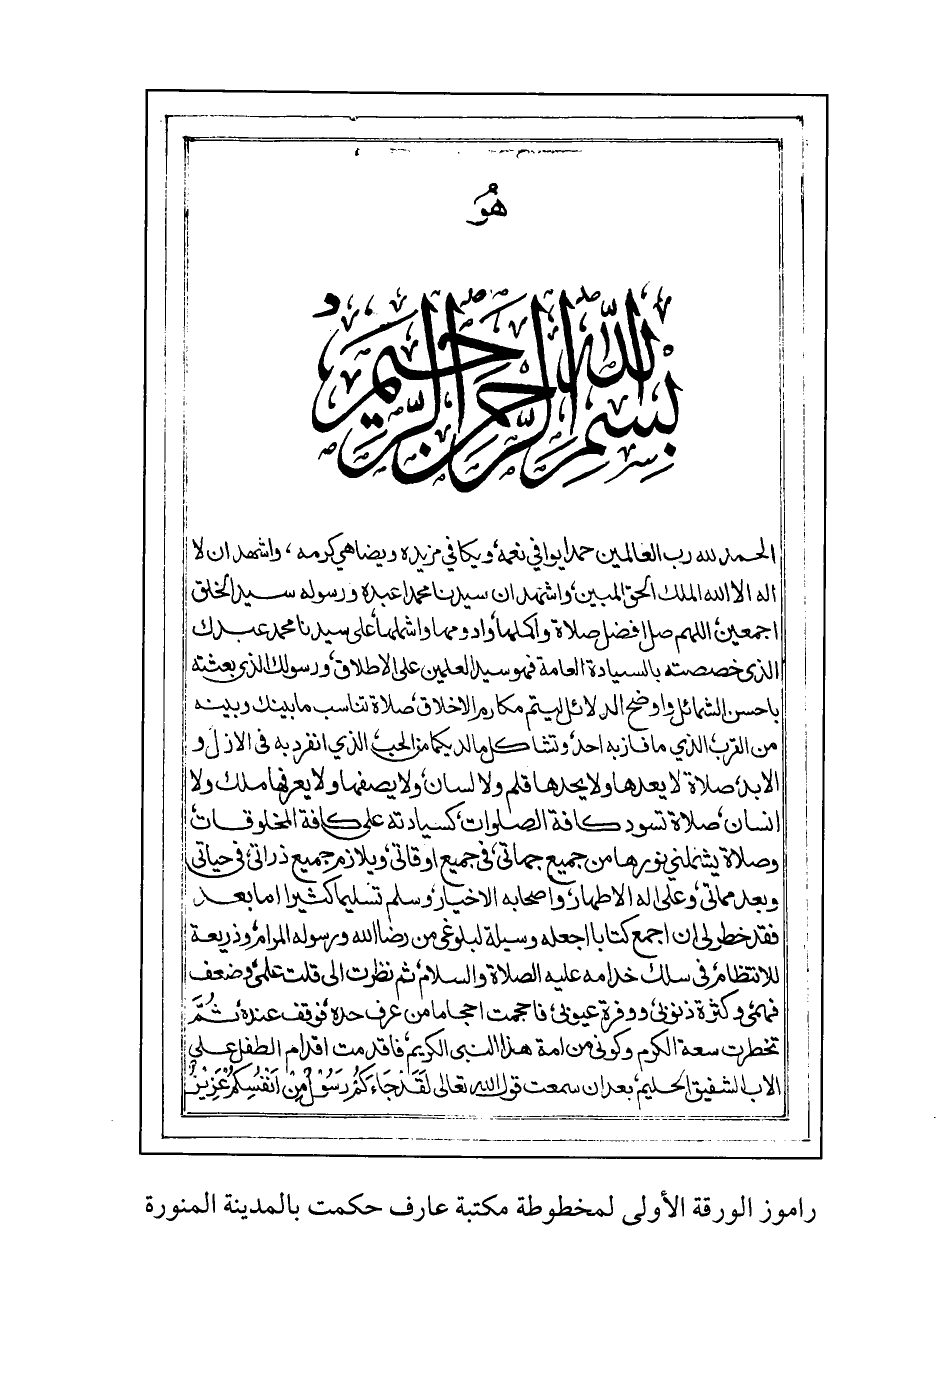 هُو
بِسْمِ اللّٰهِ الرَّحْمٰنِ الرَّحِيمِ
الحمد لله رب العالمين حمدا يوافي نعمه ويكافي مزيده ويضاهي كرمه ، واشهد ان لا
اله الا الله الملك الحق المبين واشهد ان سيدنا محمدا عبده ورسوله سيد الخلق
اجمعين اللهم صل افضل صلاة واكملها وادومها واشملها على سيدنا محمد عبدك
الذي خصصته بالسيادة العامة فهو سيد العلمين على الاطلاق ورسولك الذي بعثته
باحسن الشمائل واوضح الدلائل ليتم مكارم الاخلاق صلاة تناسب ما بينك وبينه
من القرب الذي ما فاز به احد وتشاكل ما لديكما من الحب الذي انفرد به فى الازل و
الابد صلاة لا يعدها ولا يحدها قلم ولا لسان ولا يصفها ولا يعرفها ملك ولا
انسان صلاة تسود كافة الصلوات كسيادته على كافة المخلوقات
وصلاة يشملني نورها من جميع جهاتى فى جميع اوقاتى ويلازم جميع ذراتى فى حياتى
وبعد مماتى وعلى اله الاطهار واصحابه الاخيار وسلم تسليما كثيرا اما بعد
فقد خطر لى ان اجمع كتابا اجعله وسيلة لبلوغى من رضا الله ورسوله المرام وذريعة
للانتظام فى سلك خدامه عليه الصلاة والسلام ثم نظرت الى قلت علمى وضعف
فهمى وكثرة ذنوبى ووفرة عيوبى فاحجمت احجاما من عرف حده فوقف عنده ثُمَّ
تخطرت سعة الكرم وكونى من امة هذا النبى الكريم فاقدمت اقدام الطفل على
الاب الشفيق الحليم بعد ان سمعت قول الله تعالى لَقَدْ جَاءَكُمْ رَسُولٌ مِنْ اَنْفُسِكُمْ عَزِيزٌ
راموز الورقة الأولى لمخطوطة مكتبة عارف حكمت بالمدينة المنورة